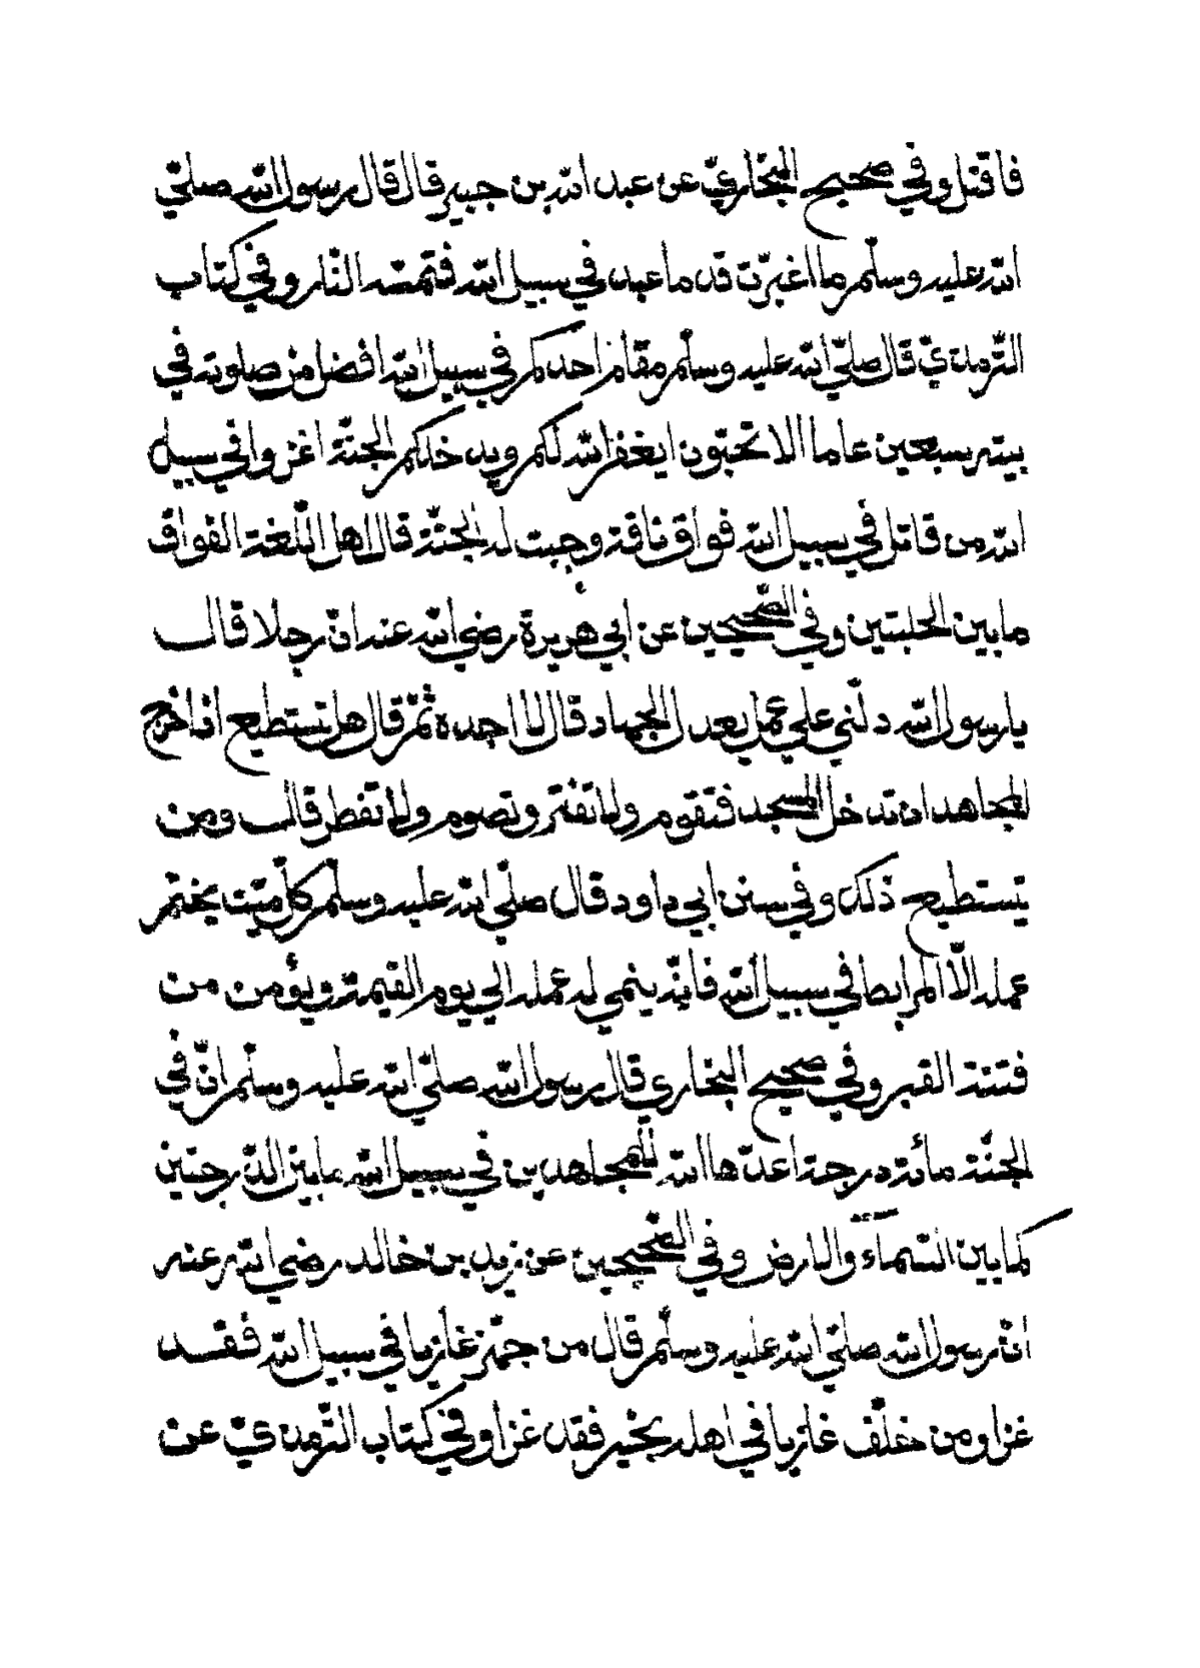 فاقتل وفي صحيح البخاريّ عن عبد الله بن جبير قال قال رسول الله صلّي
الله عليه وسلّم ما اغبرّت قدما عبد في سبيل الله فتمسّه النّار وفي كتاب
التّرمذيّ قال صلّي الله عليه وسلّم مقام احدكم في سبيل الله افضل من صلوته في
بيته سبعين عاما الا تحبّون ان يغفر الله لكم ويدخلكم الجنّة اغزوا في سبيل
الله من قاتل في سبيل الله فواق ناقة وجبت له الجنّة قال اهل اللّغة الفواق
ما بين الحلبتين وفي الصّحيحين عن ابي هريرة رضي الله عنه انّ رجلا قال
يا رسول الله دلّني علي عمل يعدل الجهاد قال لا اجده ثمّ قال هل تستطيع اذا خرج
المجاهد ان تدخل المسجد فتقوم ولا تفتر وتصوم ولا تفطر قال ومن
يستطيع ذلك وفي سنن ابي داود قال صلّي الله عليه وسلّم كلّ ميّت يختم
عمله الّا المرابط في سبيل الله فانّه ينمي له عمله الي يوم القيمة ويؤمن من
فتنة القبر وفي صحيح البخاري قال رسول الله صلّي الله عليه وسلّم انّ في
الجنّة مائة درجة اعدّها الله للمجاهدين في سبيل الله ما بين الدّرجتين
كما بين السّمآء والارض وفي الصّحيحين عن زيد بن خالد رضي الله عنه
انّ رسول الله صلّي الله عليه وسلّم قال من جهّز غازيا في سبيل الله فقد
غزا ومن خلّف غازيا في اهله بخير فقد غزا وفي كتاب التّرمذيّ عن